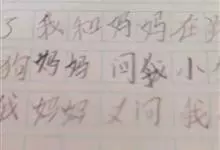 5 我和妈妈在
狗妈妈 问我小
我 妈妈 又问 我